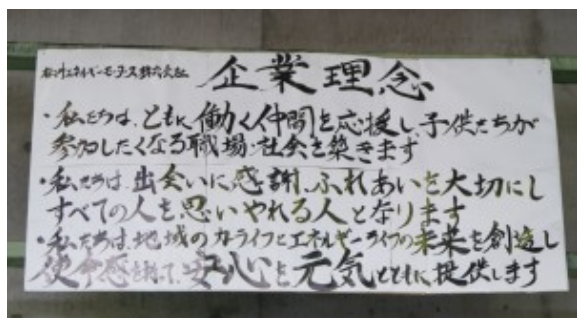 エネルギーモータース株式会社 企業理念
・私たちは、ともに働く仲間を応援し、子供たちが
参加したくなる職場・社会を築きます
・私たちは、出会いに感謝、ふれあいを大切にし
すべての人を思いやれる人となります
・私たちは、地域のカーライフとエネルギーライフの未来を創造し
使命感を持って、安心を元気とともに提供します